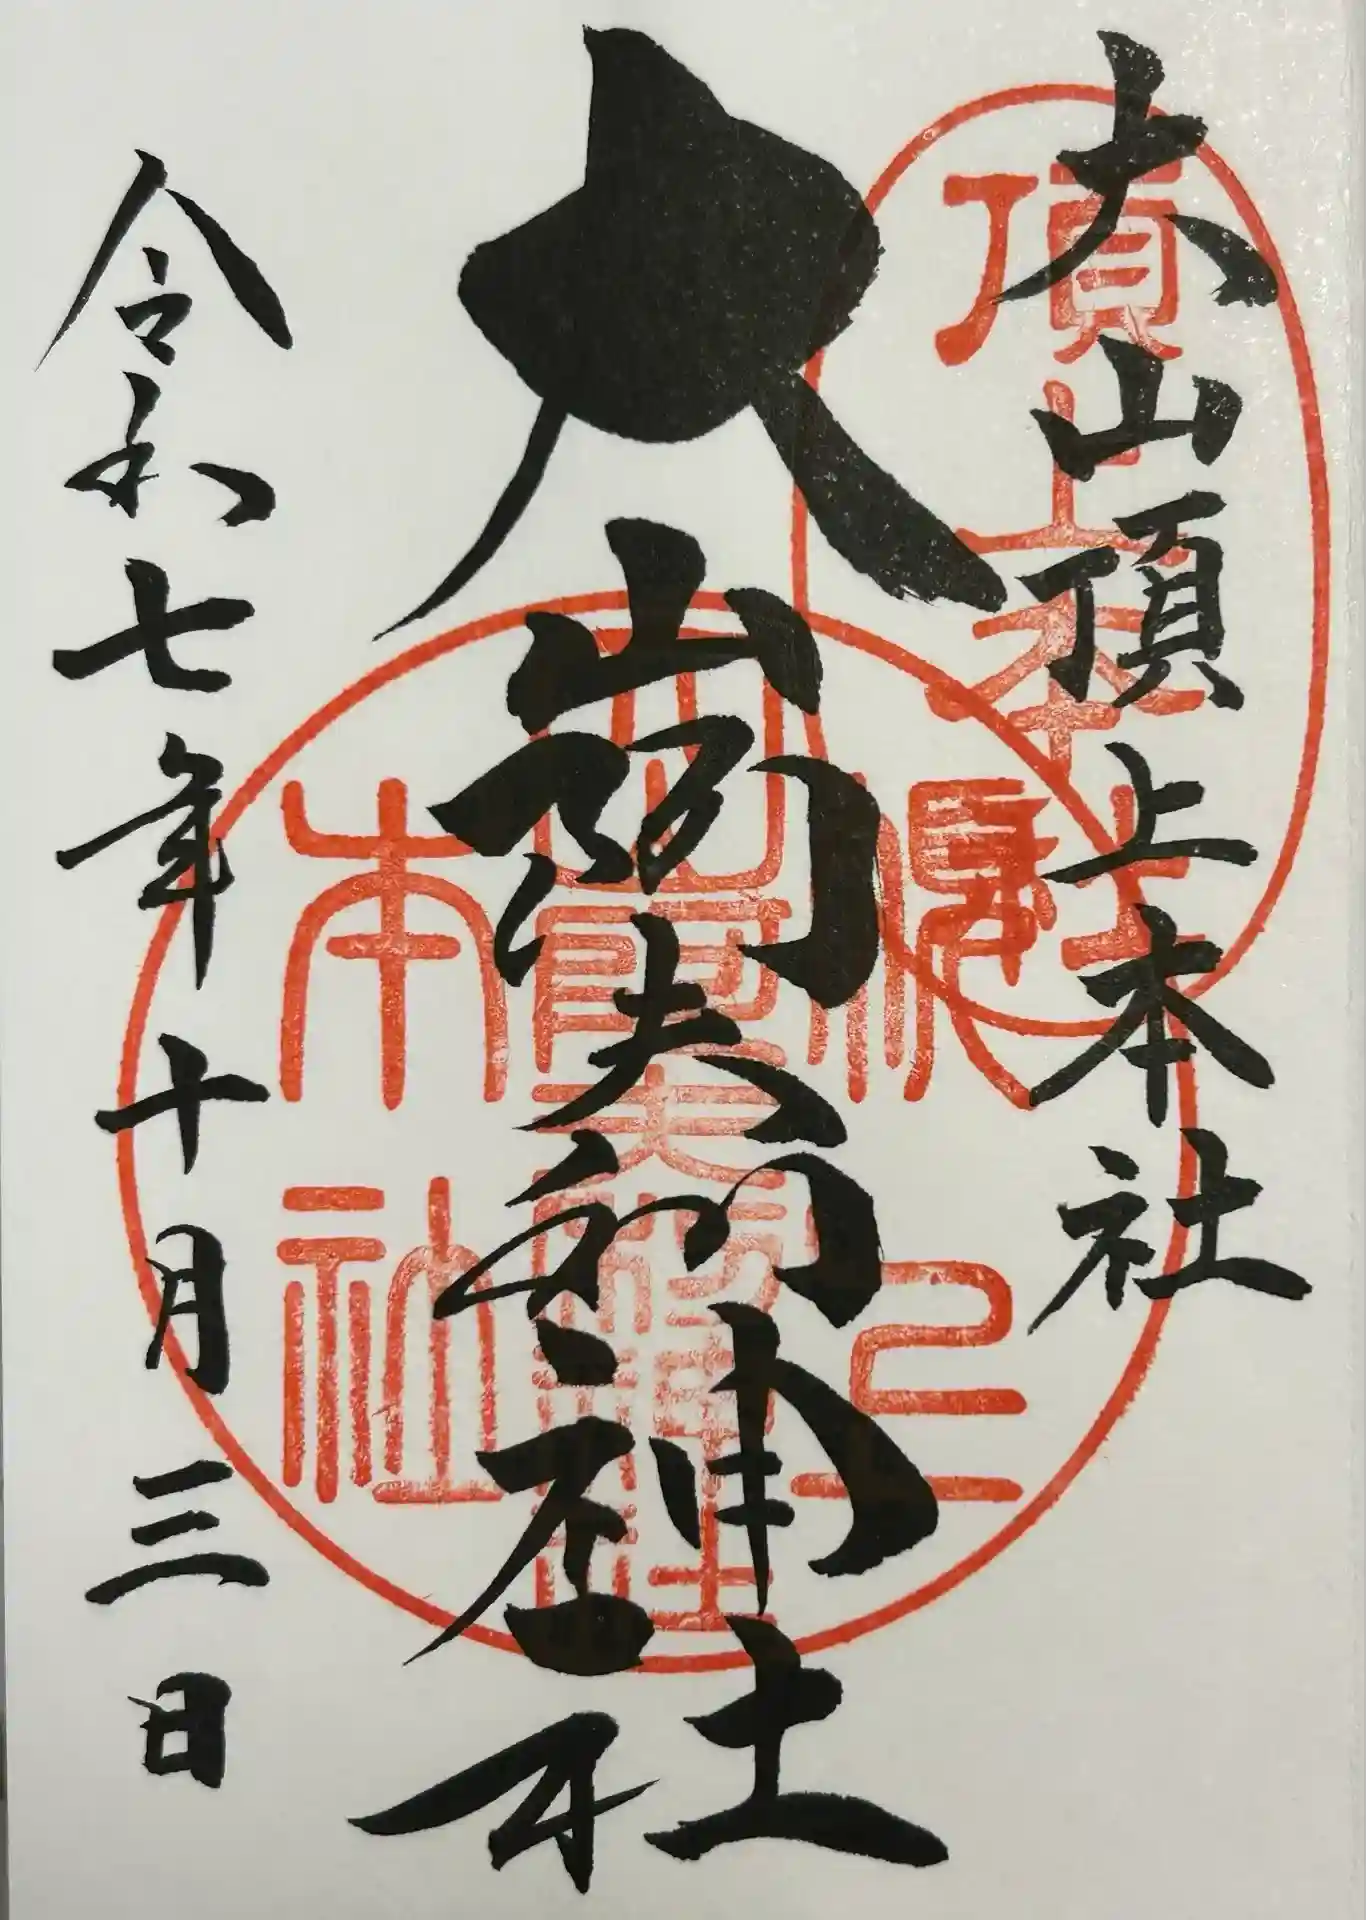 大山頂上本社
大山阿夫利神社
令和七年十月三日
頂上本社
本社